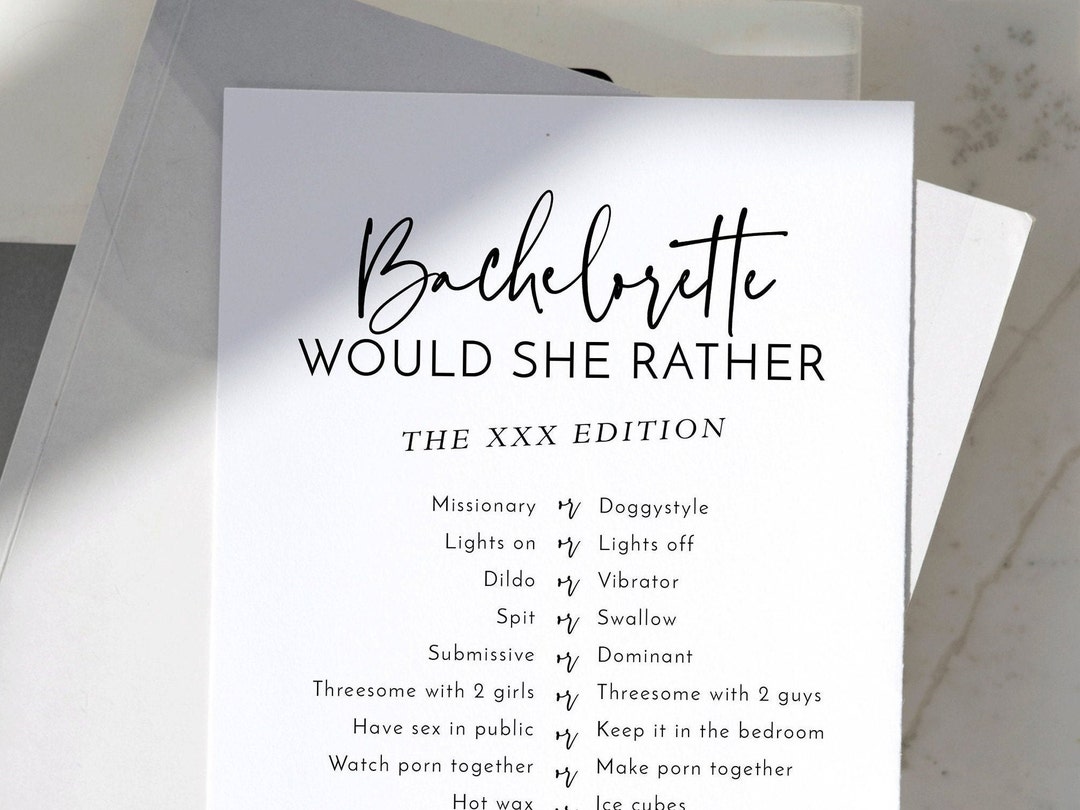 Bachelorette
WOULD SHE RATHER
THE XXX EDITION
Missionary or Doggystyle
Lights on or Lights off
Dildo or Vibrator
Spit or Swallow
Submissive or Dominant
Threesome with 2 girls or Threesome with 2 guys
Have sex in public or Keep it in the bedroom
Watch porn together or Make porn together
Hot wax or Ice cubes